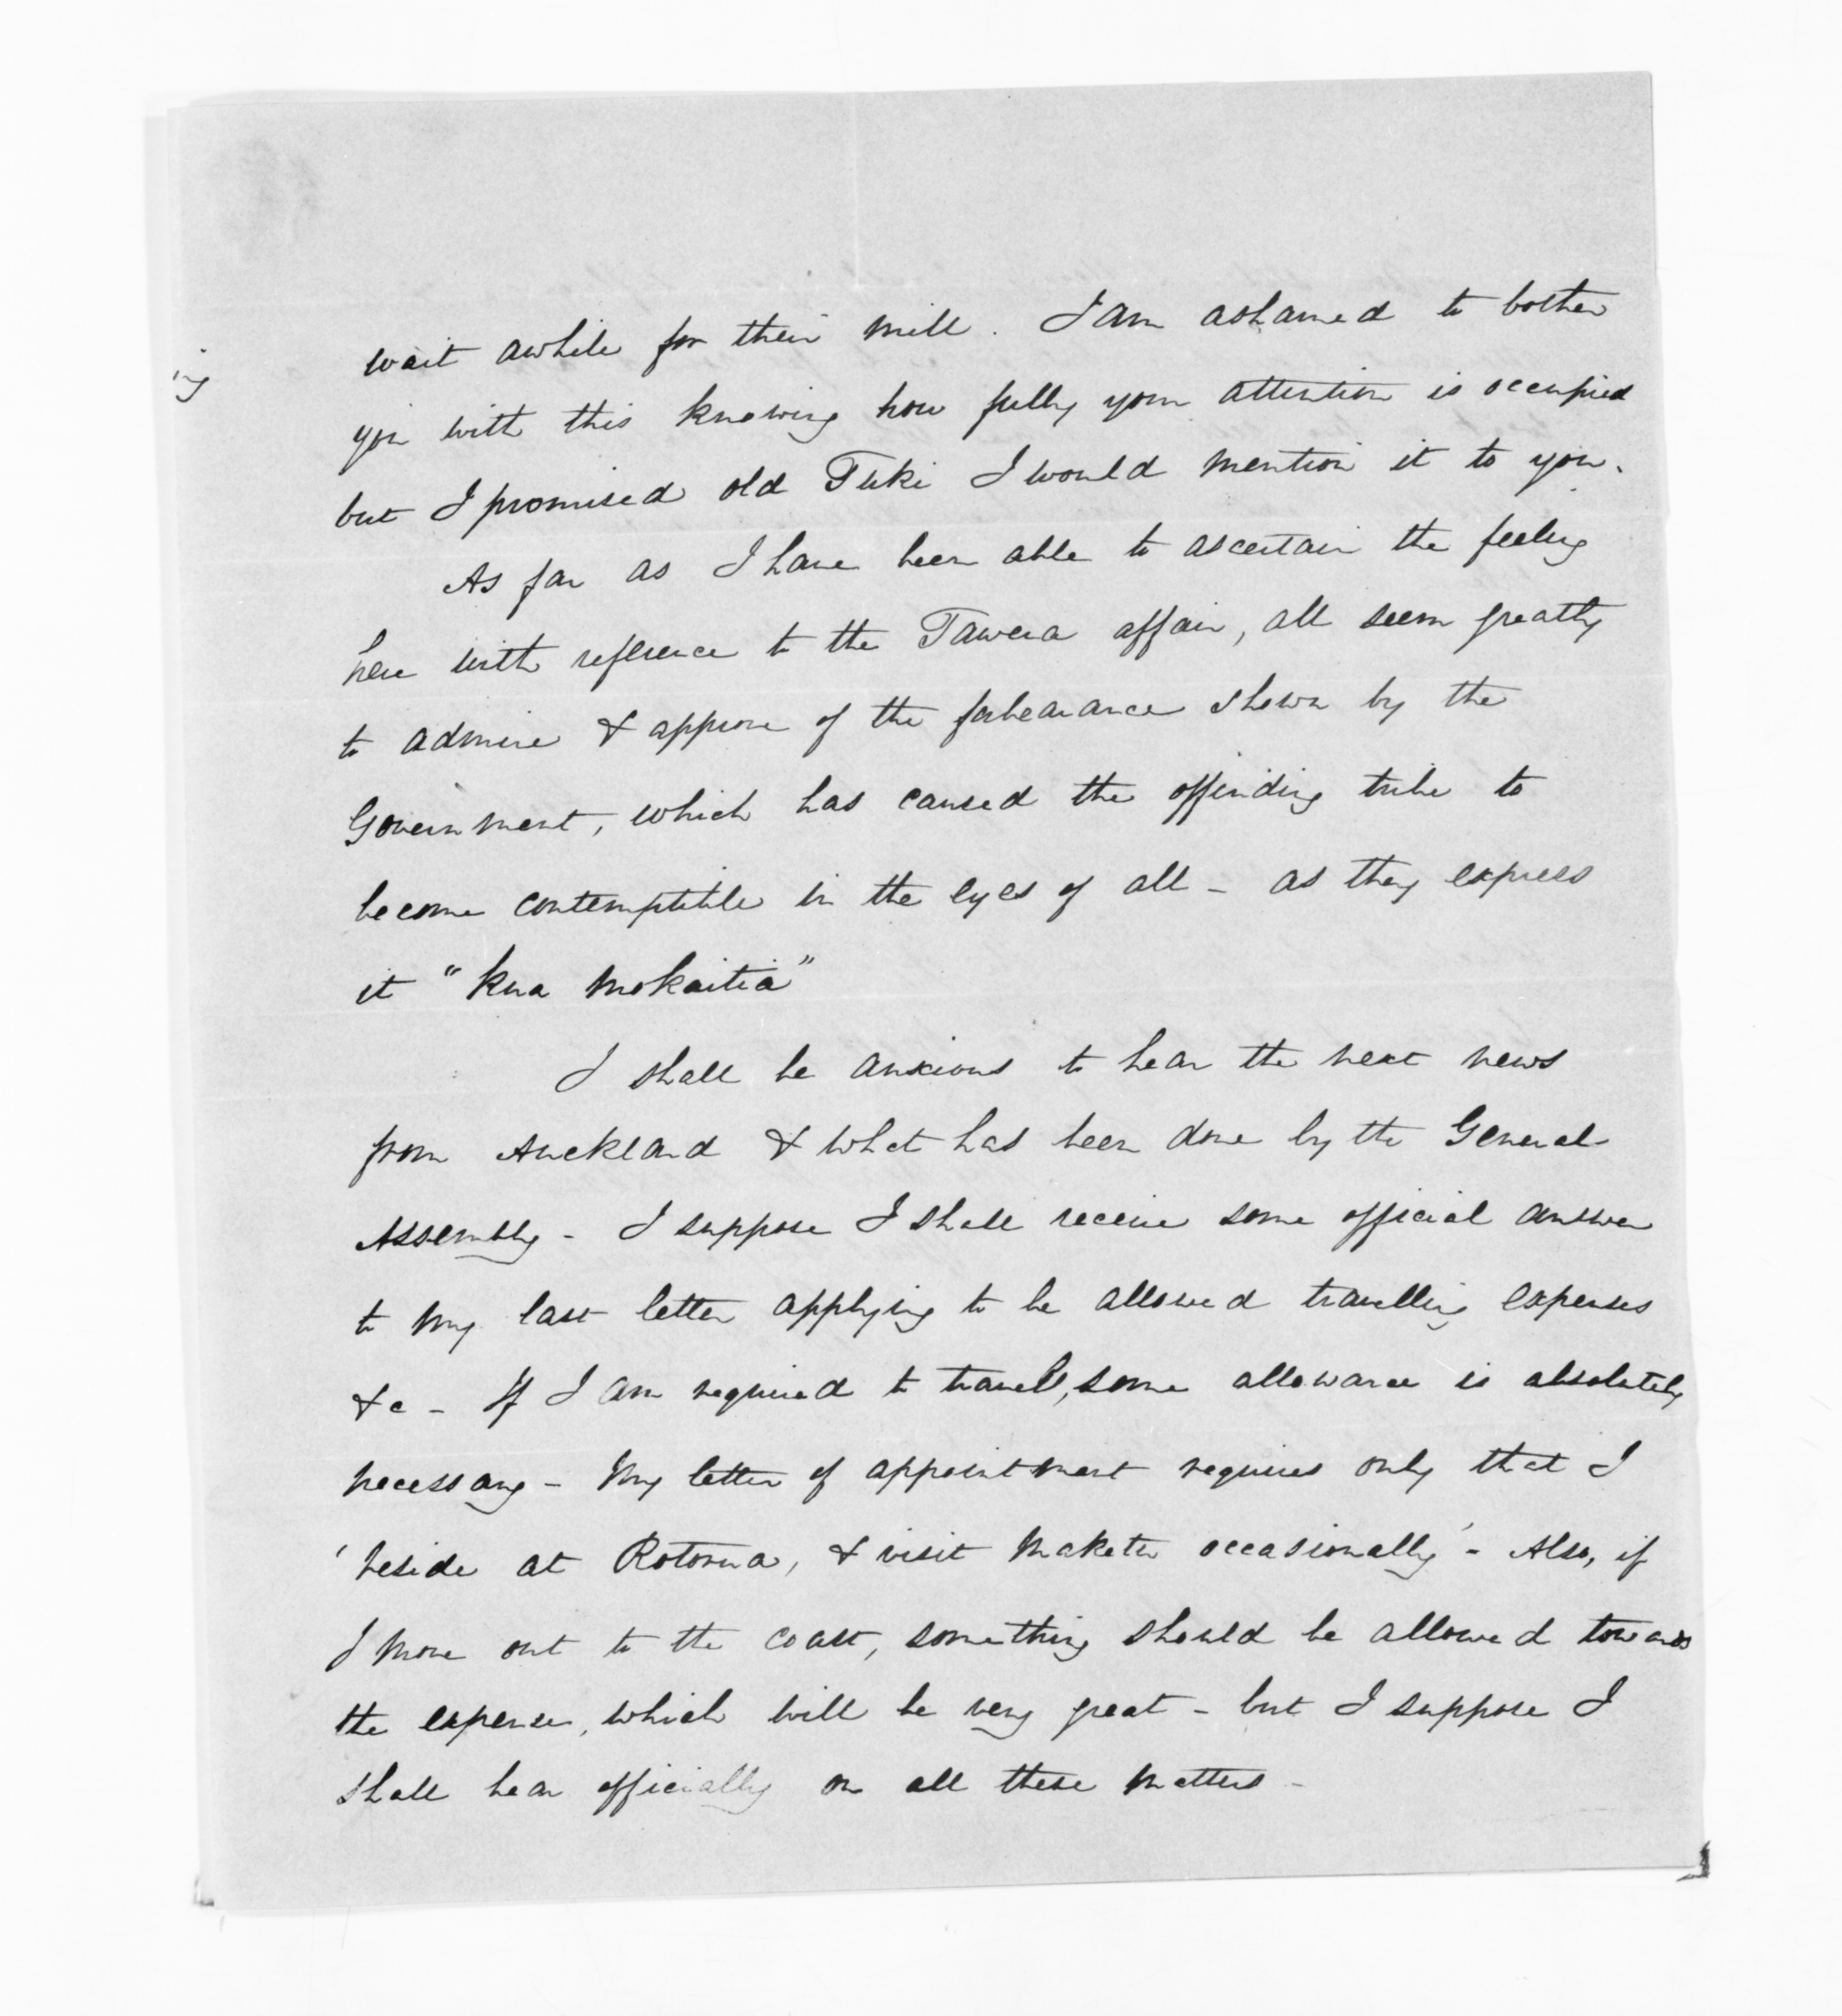 wait awhile for their mill. I am ashamed to bother
you with this knowing how fully your attention is occupied
but I promised old Tuki I would mention it to you.
As far as I have been able to ascertain the feeling
here with reference to the Tawera affair, all seem greatly
to admire & approve of the forbearance shown by the
Government, which has caused the offending tribe to
become contemptible in the eyes of all - as they express
it "kua mokaitia"
I shall be anxious to hear the next news
from Auckland & what has been done by the General
Assembly - I suppose I shall receive some official answer
to my last letter applying to be allowed travelling expenses
&c - If I am required to travell, some allowance is absolutely
necessary - My letter of appointment requires only that I
'reside at Rotorua, & visit Maketu occasionally' - Also, if
I move out to the coast, something should be allowed towards
the expense, which will be very great - but I suppose I
shall hear officially on all these matters -